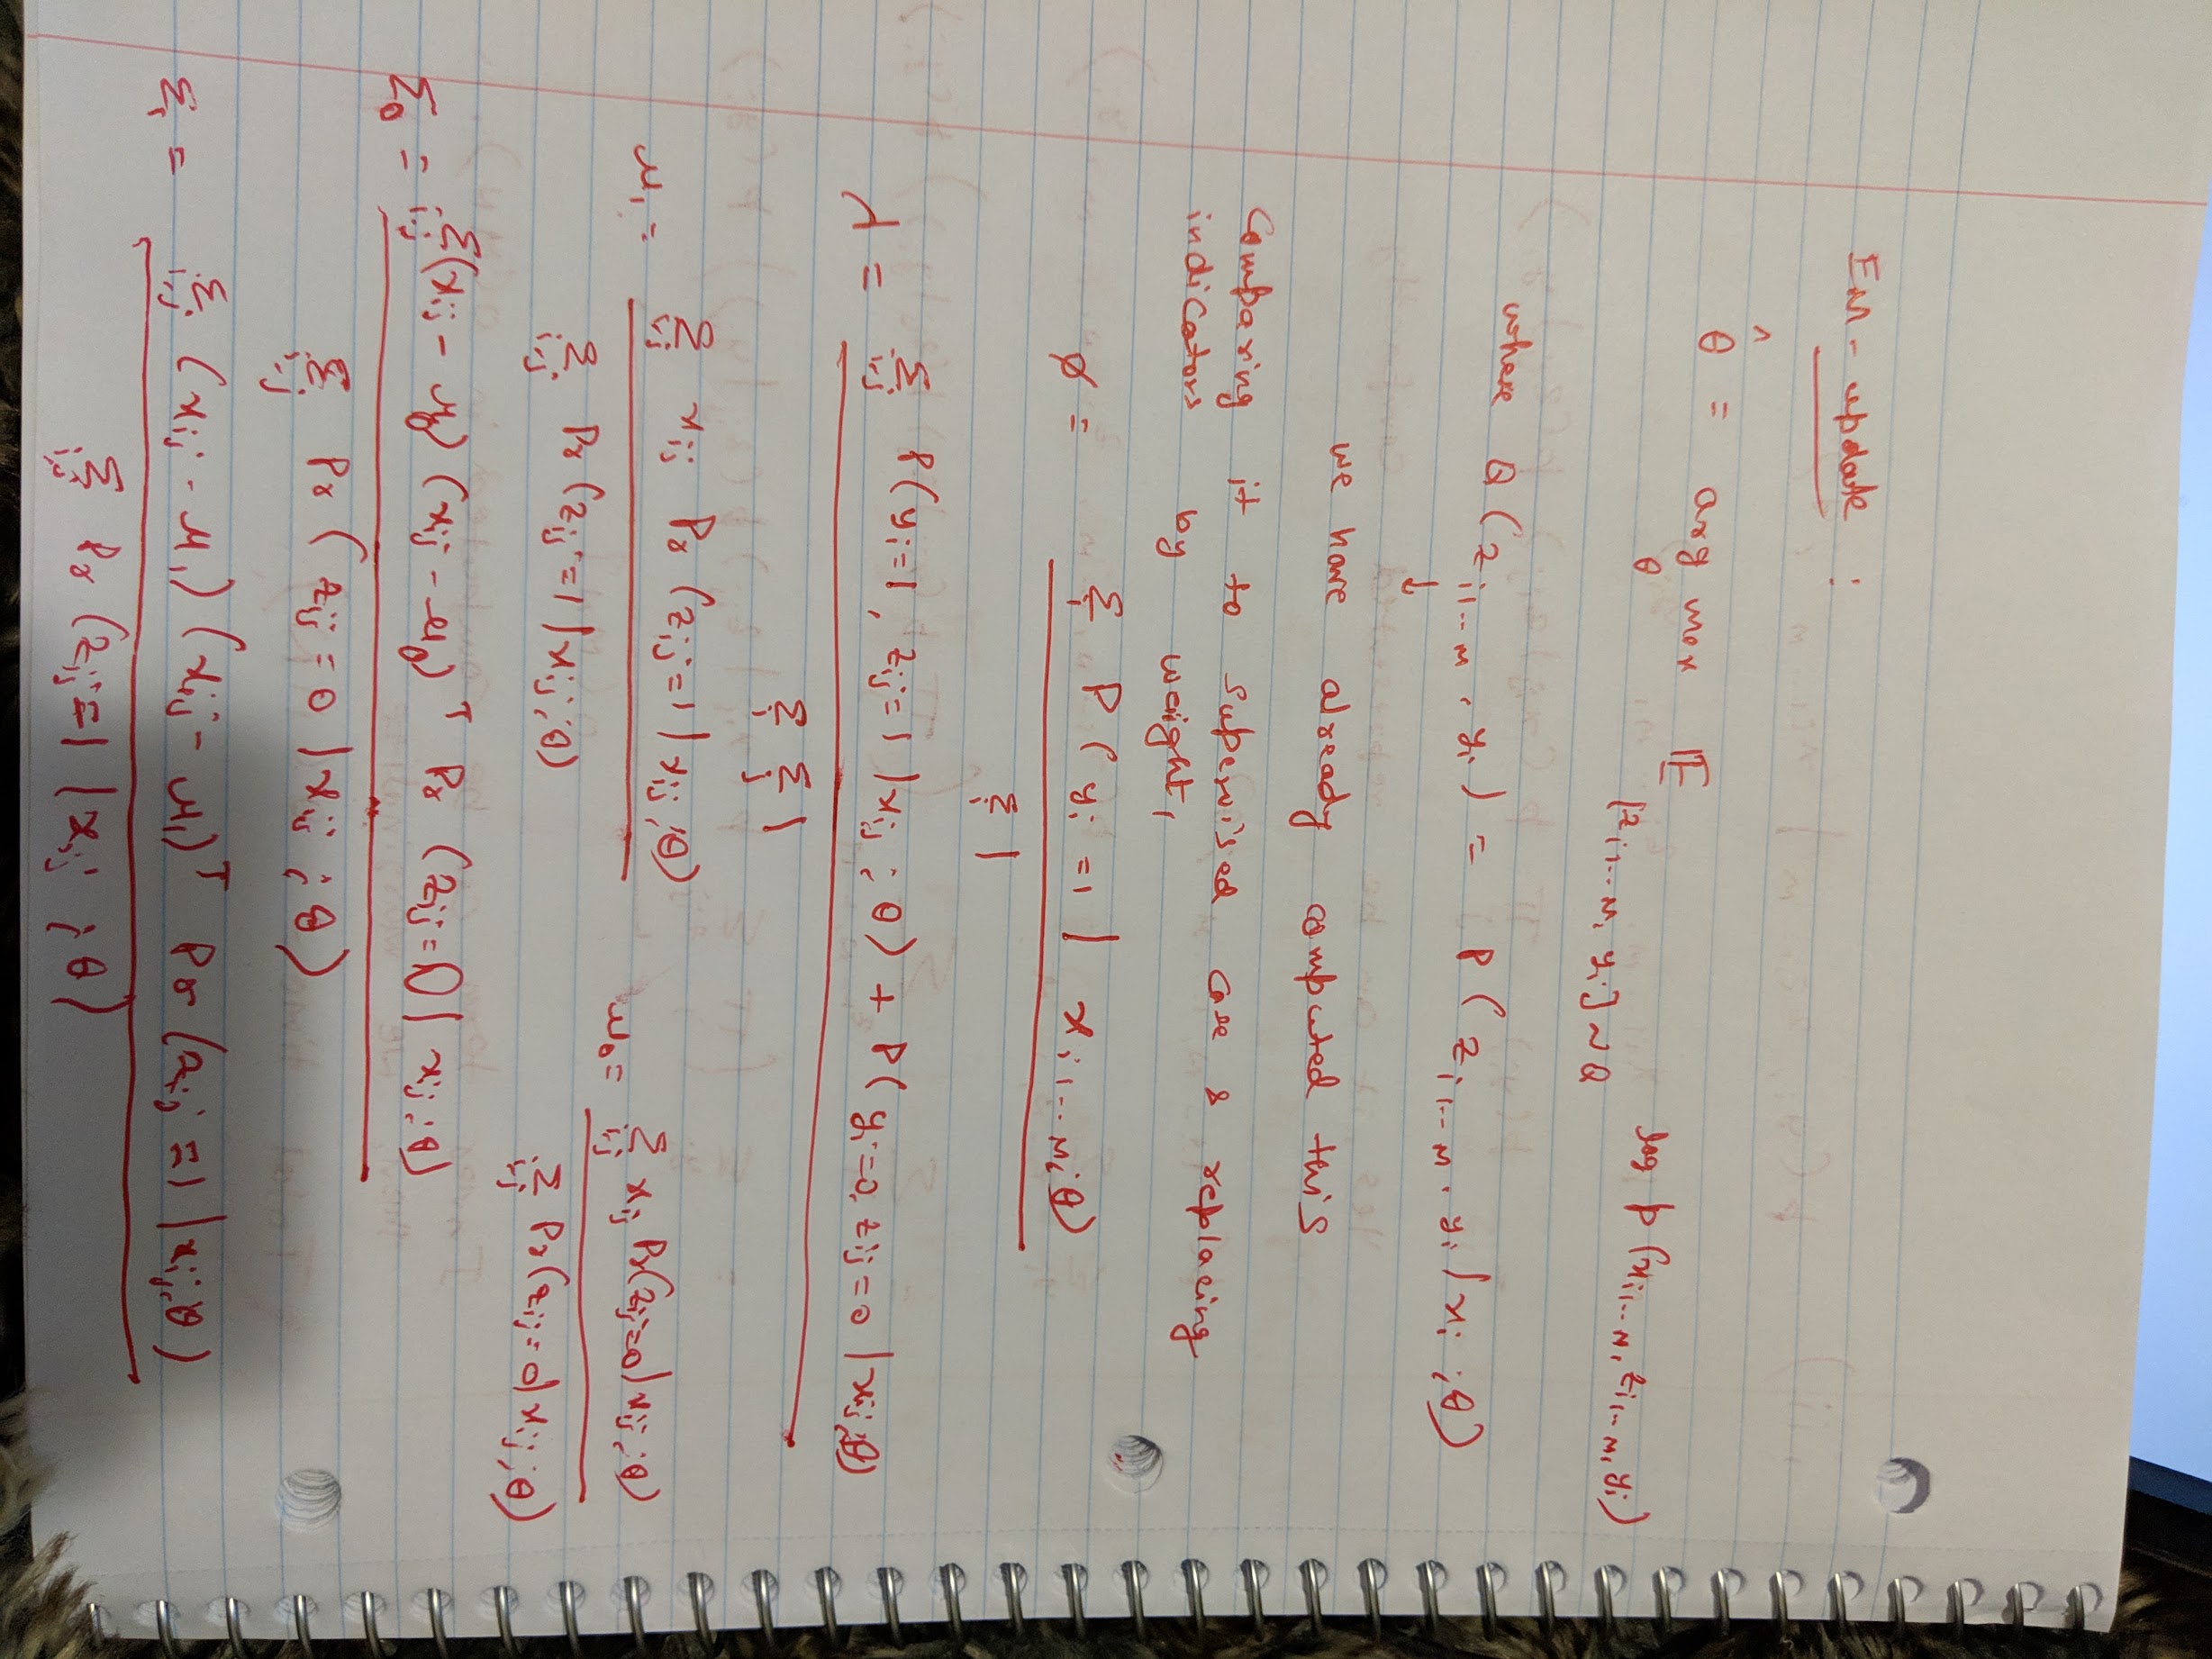 EM - update :
θ̂ = arg max_θ 𝔼_{[z_{i1...M}, y_i] ~ Q} log p(x_{i1...M}, z_{i1...M}, y_i)
where Q(z_{i1...M}, y_i) = P(z_{i1...M}, y_i | x_i ; θ)
↓
we have already computed this
Comparing it to supervised case & replacing
indicators by weight,
φ = Σ_i P(y_i = 1 | x_{i1...M}; θ) / Σ_i 1
γ = Σ_{i,j} P(y_i = 1, z_{ij} = 1 | x_{ij} ; θ) + P(y_i = 0, z_{ij} = 0 | x_{ij}; θ) / Σ_i Σ_j 1
μ_1 = Σ_{i,j} x_{ij} Pr(z_{ij} = 1 | x_{ij}; θ) / Σ_{i,j} Pr(z_{ij} = 1 | x_{ij}; θ) μ_0 = Σ_{i,j} x_{ij} Pr(z_{ij} = 0 | x_{ij}; θ) / Σ_{i,j} Pr(z_{ij} = 0 | x_{ij}; θ)
Σ_0 = Σ_{i,j} (x_{ij} - μ_0)(x_{ij} - μ_0)^T Pr(z_{ij} = 0 | x_{ij}; θ) / Σ_{i,j} Pr(z_{ij} = 0 | x_{ij}; θ)
Σ_1 = Σ_{i,j} (x_{ij} - μ_1)(x_{ij} - μ_1)^T Pr(z_{ij} = 1 | x_{ij}; θ) / Σ_{i,j} Pr(z_{ij} = 1 | x_{ij}; θ)